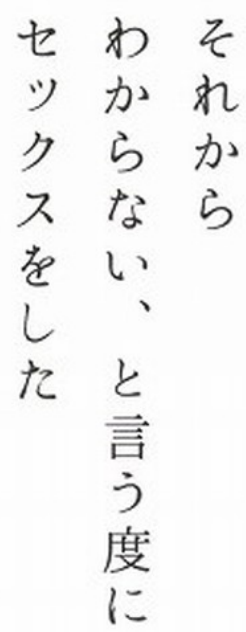 それから
わからない、と言う度に
セックスをした